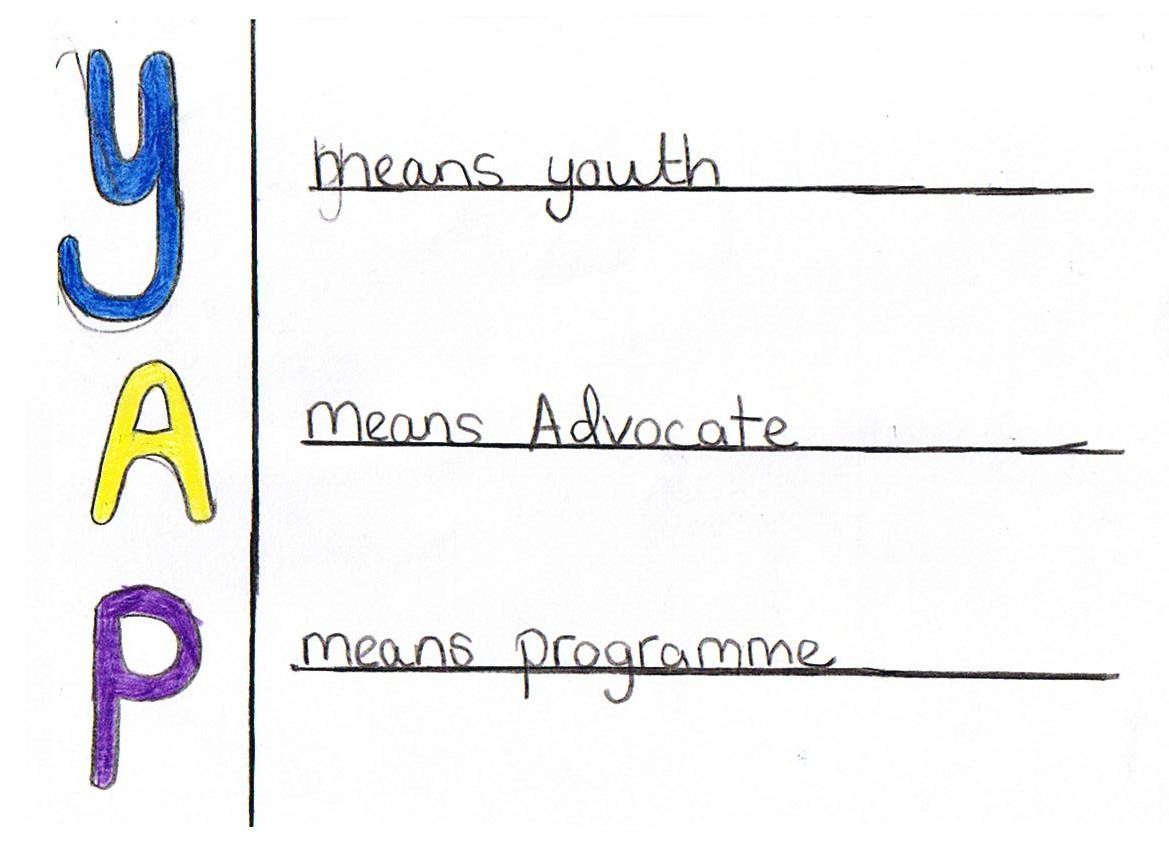 y means youth
A means Advocate
P means programme